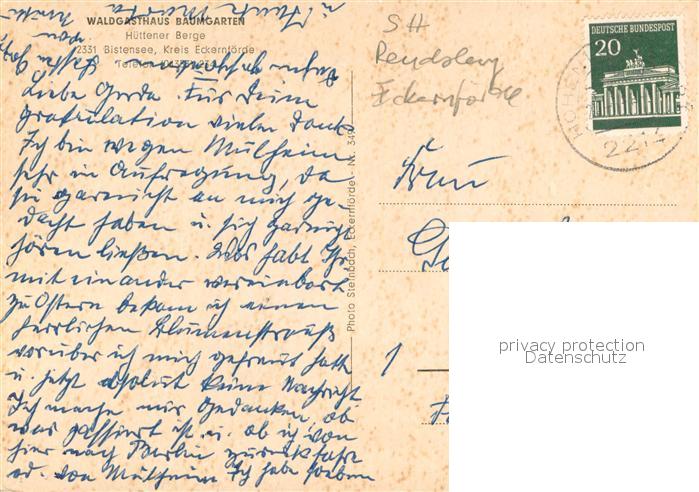 WALDGASTHAUS BAUMGARTEN
Hüttener Berge
2331 Bistensee, Kreis Eckernförde
Telefon
Liebe Gerda Für Deine
Gratulation vielen Dank
Ich bin wegen Mülheim
sehr in Aufregung, da
sie garnicht an mich ge-
dacht haben u. sich garnicht
hören ließen. Was habt Ihr
miteinander vereinbart
zu Ostern bekam ich einen
herrlichen Blumenstrauß
worüber ich mich gefreut hatte
u. jetzt absolut keine Nachricht
Ich mache mir Gedanken ob
was passiert ist u. ob ich von
hier nach Berlin zurückfahre
od. von Mülheim Ich habe soeben
Photo Steinbach, Eckernförde Nr. 349
SH
Rendsburg
Eckernförde
DEUTSCHE BUNDESPOST
20
2214
Frau
privacy protection
Datenschutz